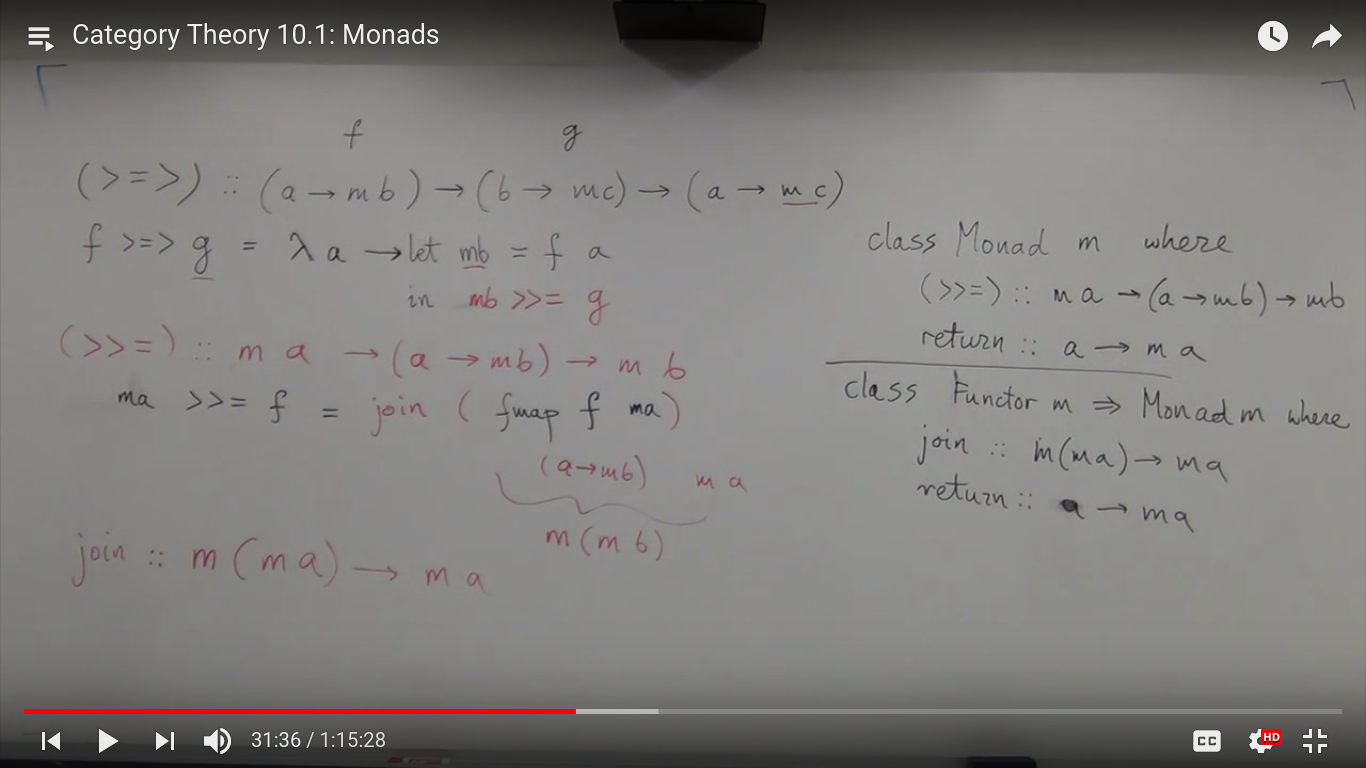 Category Theory 10.1: Monads
f g
(>=>) :: (a → m b) → (b → mc) → (a → m c)
f >=> g = λ a → let mb = f a
in mb >>= g
(>>=) :: m a → (a → mb) → m b
ma >>= f = join ( fmap f ma)
(a→mb) m a
m(m b)
join :: m (m a) → m a
class Monad m where
(>>=) :: m a → (a → mb) → mb
return :: a → m a
class Functor m ⇒ Monad m where
join :: m(ma) → ma
return :: a → ma
31:36 / 1:15:28
CC
HD